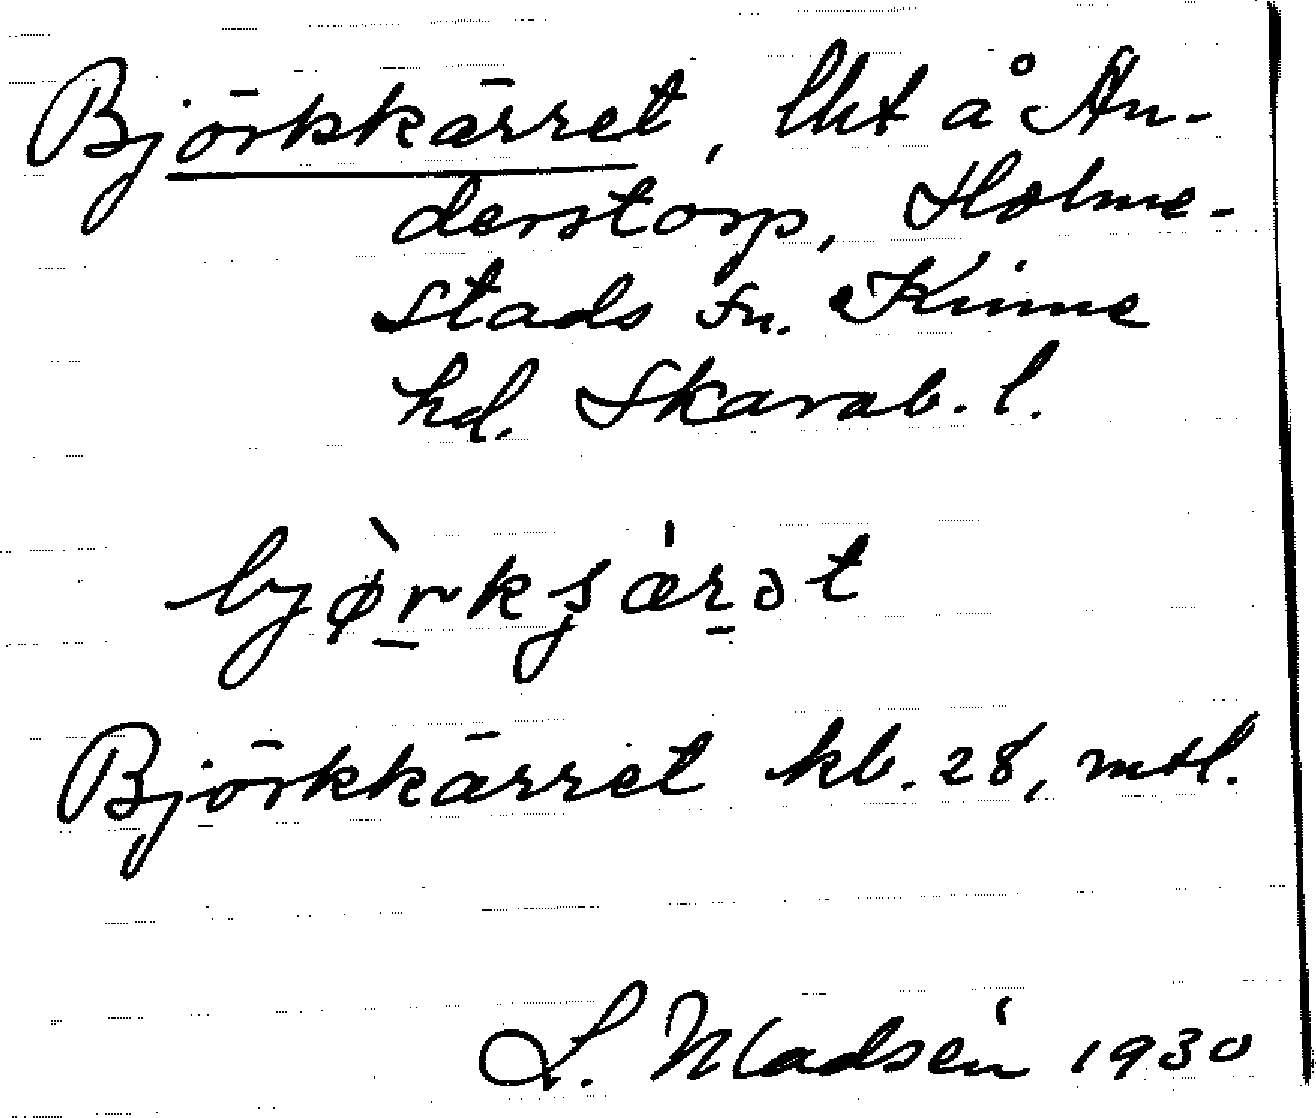 Björkkärret, lht å Ån-
derstorp, Holme-
stads sn. Kinne
hd. Skarab. l.
bjø̀rkʂærət
Björkkärret kb. 28, mtl.
L. Madsén 1930